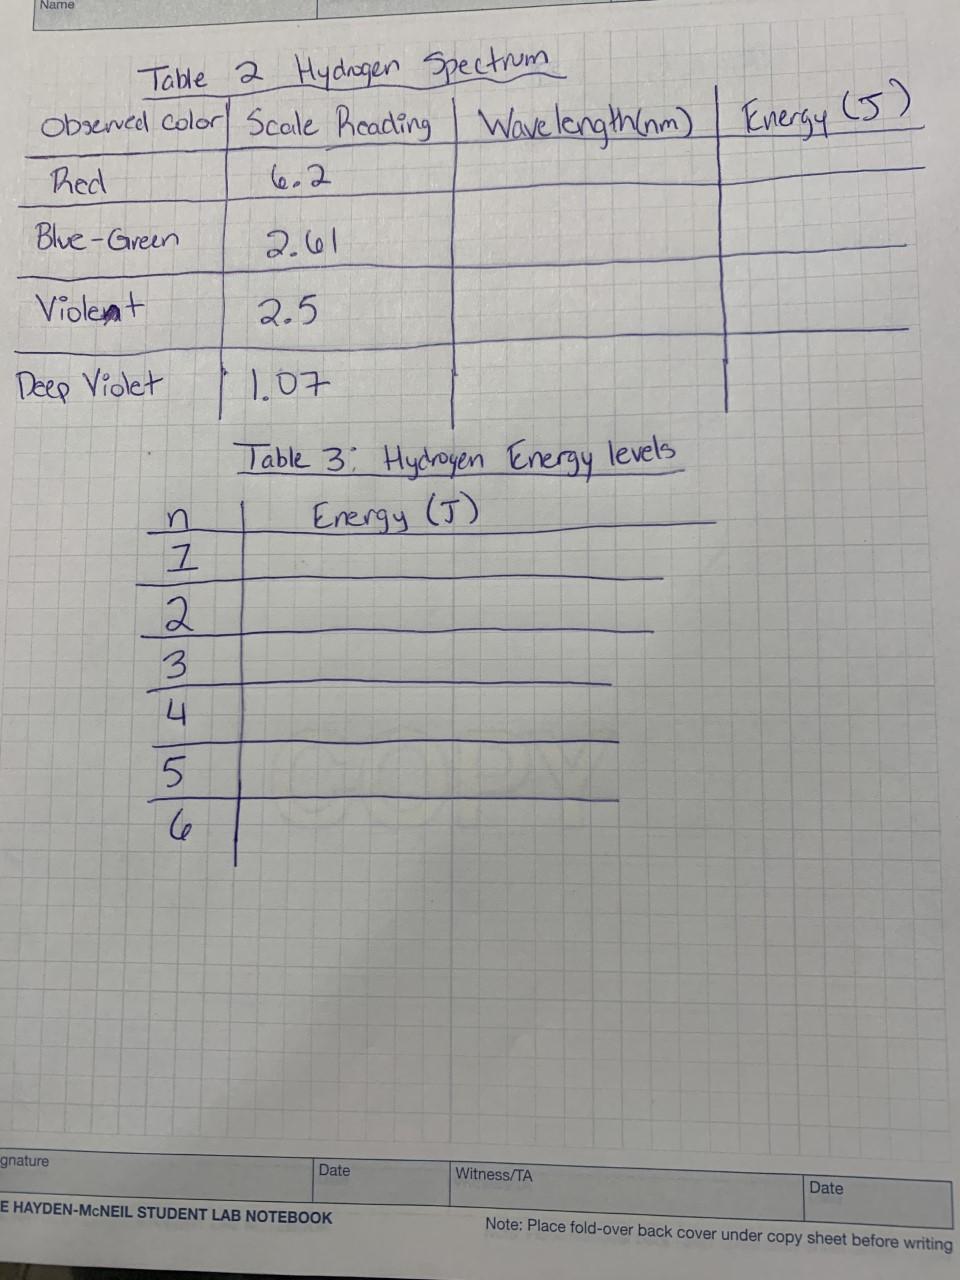 Name
Table 2 Hydrogen Spectrum
Observed color Scale Reading Wavelength(nm) Energy (J)
Red 6.2
Blue-Green 2.61
Violet 2.5
Deep Violet 1.07
Table 3: Hydrogen Energy levels
n Energy (J)
1
2
3
4
5
6
gnature Date Witness/TA Date
E HAYDEN-McNEIL STUDENT LAB NOTEBOOK
Note: Place fold-over back cover under copy sheet before writing